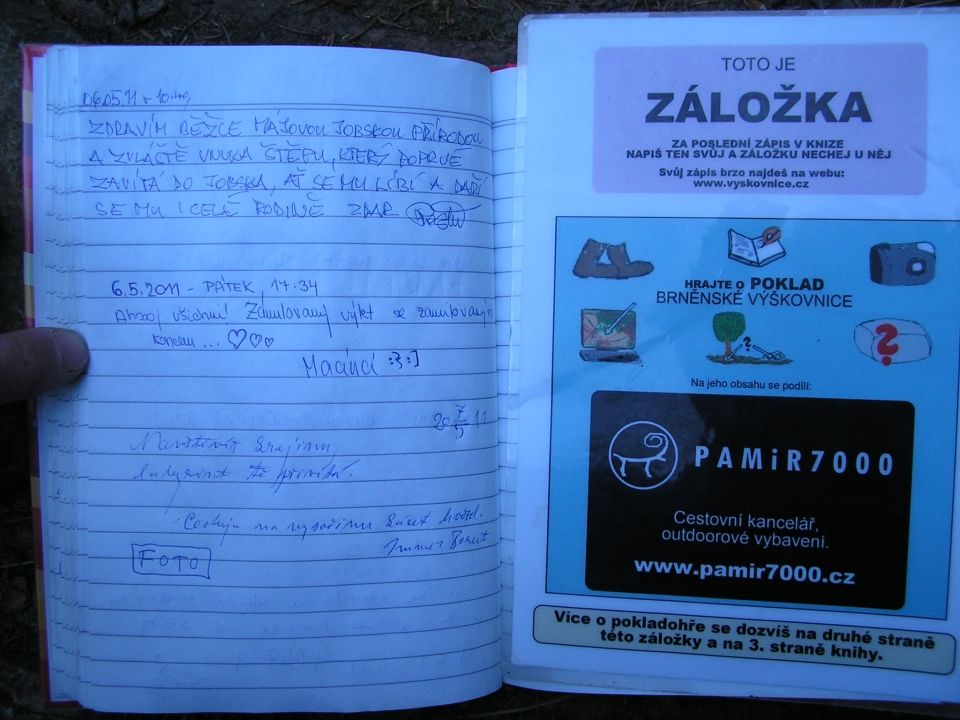 06.05.11 v 10.49
ZDRAVÍM BĚŽCE MÁJOVOU JOBSKOU PŘÍRODOU
A ZVLÁŠTĚ VNUKA ŠTĚPU, KTERÝ POPRVÉ
ZAVÍTÁ DO JOBSKA, AŤ SE MU LÍBÍ A DAŘÍ
SE MU I CELÉ RODINĚ ZDAR
6.5.2011 - PÁTEK, 17:34
Ahooj všichni! Zamilovaný výlet se zamilovaným
koncem ...
Macinci :3 :]
20 11
krajinu,
tě přivítá.
na vysočinu
FOTO
TOTO JE
ZÁLOŽKA
ZA POSLEDNÍ ZÁPIS V KNIZE
NAPIŠ TEN SVŮJ A ZÁLOŽKU NECHEJ U NĚJ
Svůj zápis brzo najdeš na webu:
www.vyskovnice.cz
HRAJTE O POKLAD
BRNĚNSKÉ VÝŠKOVNICE
?
?
Na jeho obsahu se podílí:
PAMiR7000
Cestovní kancelář,
outdoorové vybavení.
www.pamir7000.cz
Více o pokladohře se dozvíš na druhé straně
této záložky a na 3. straně knihy.